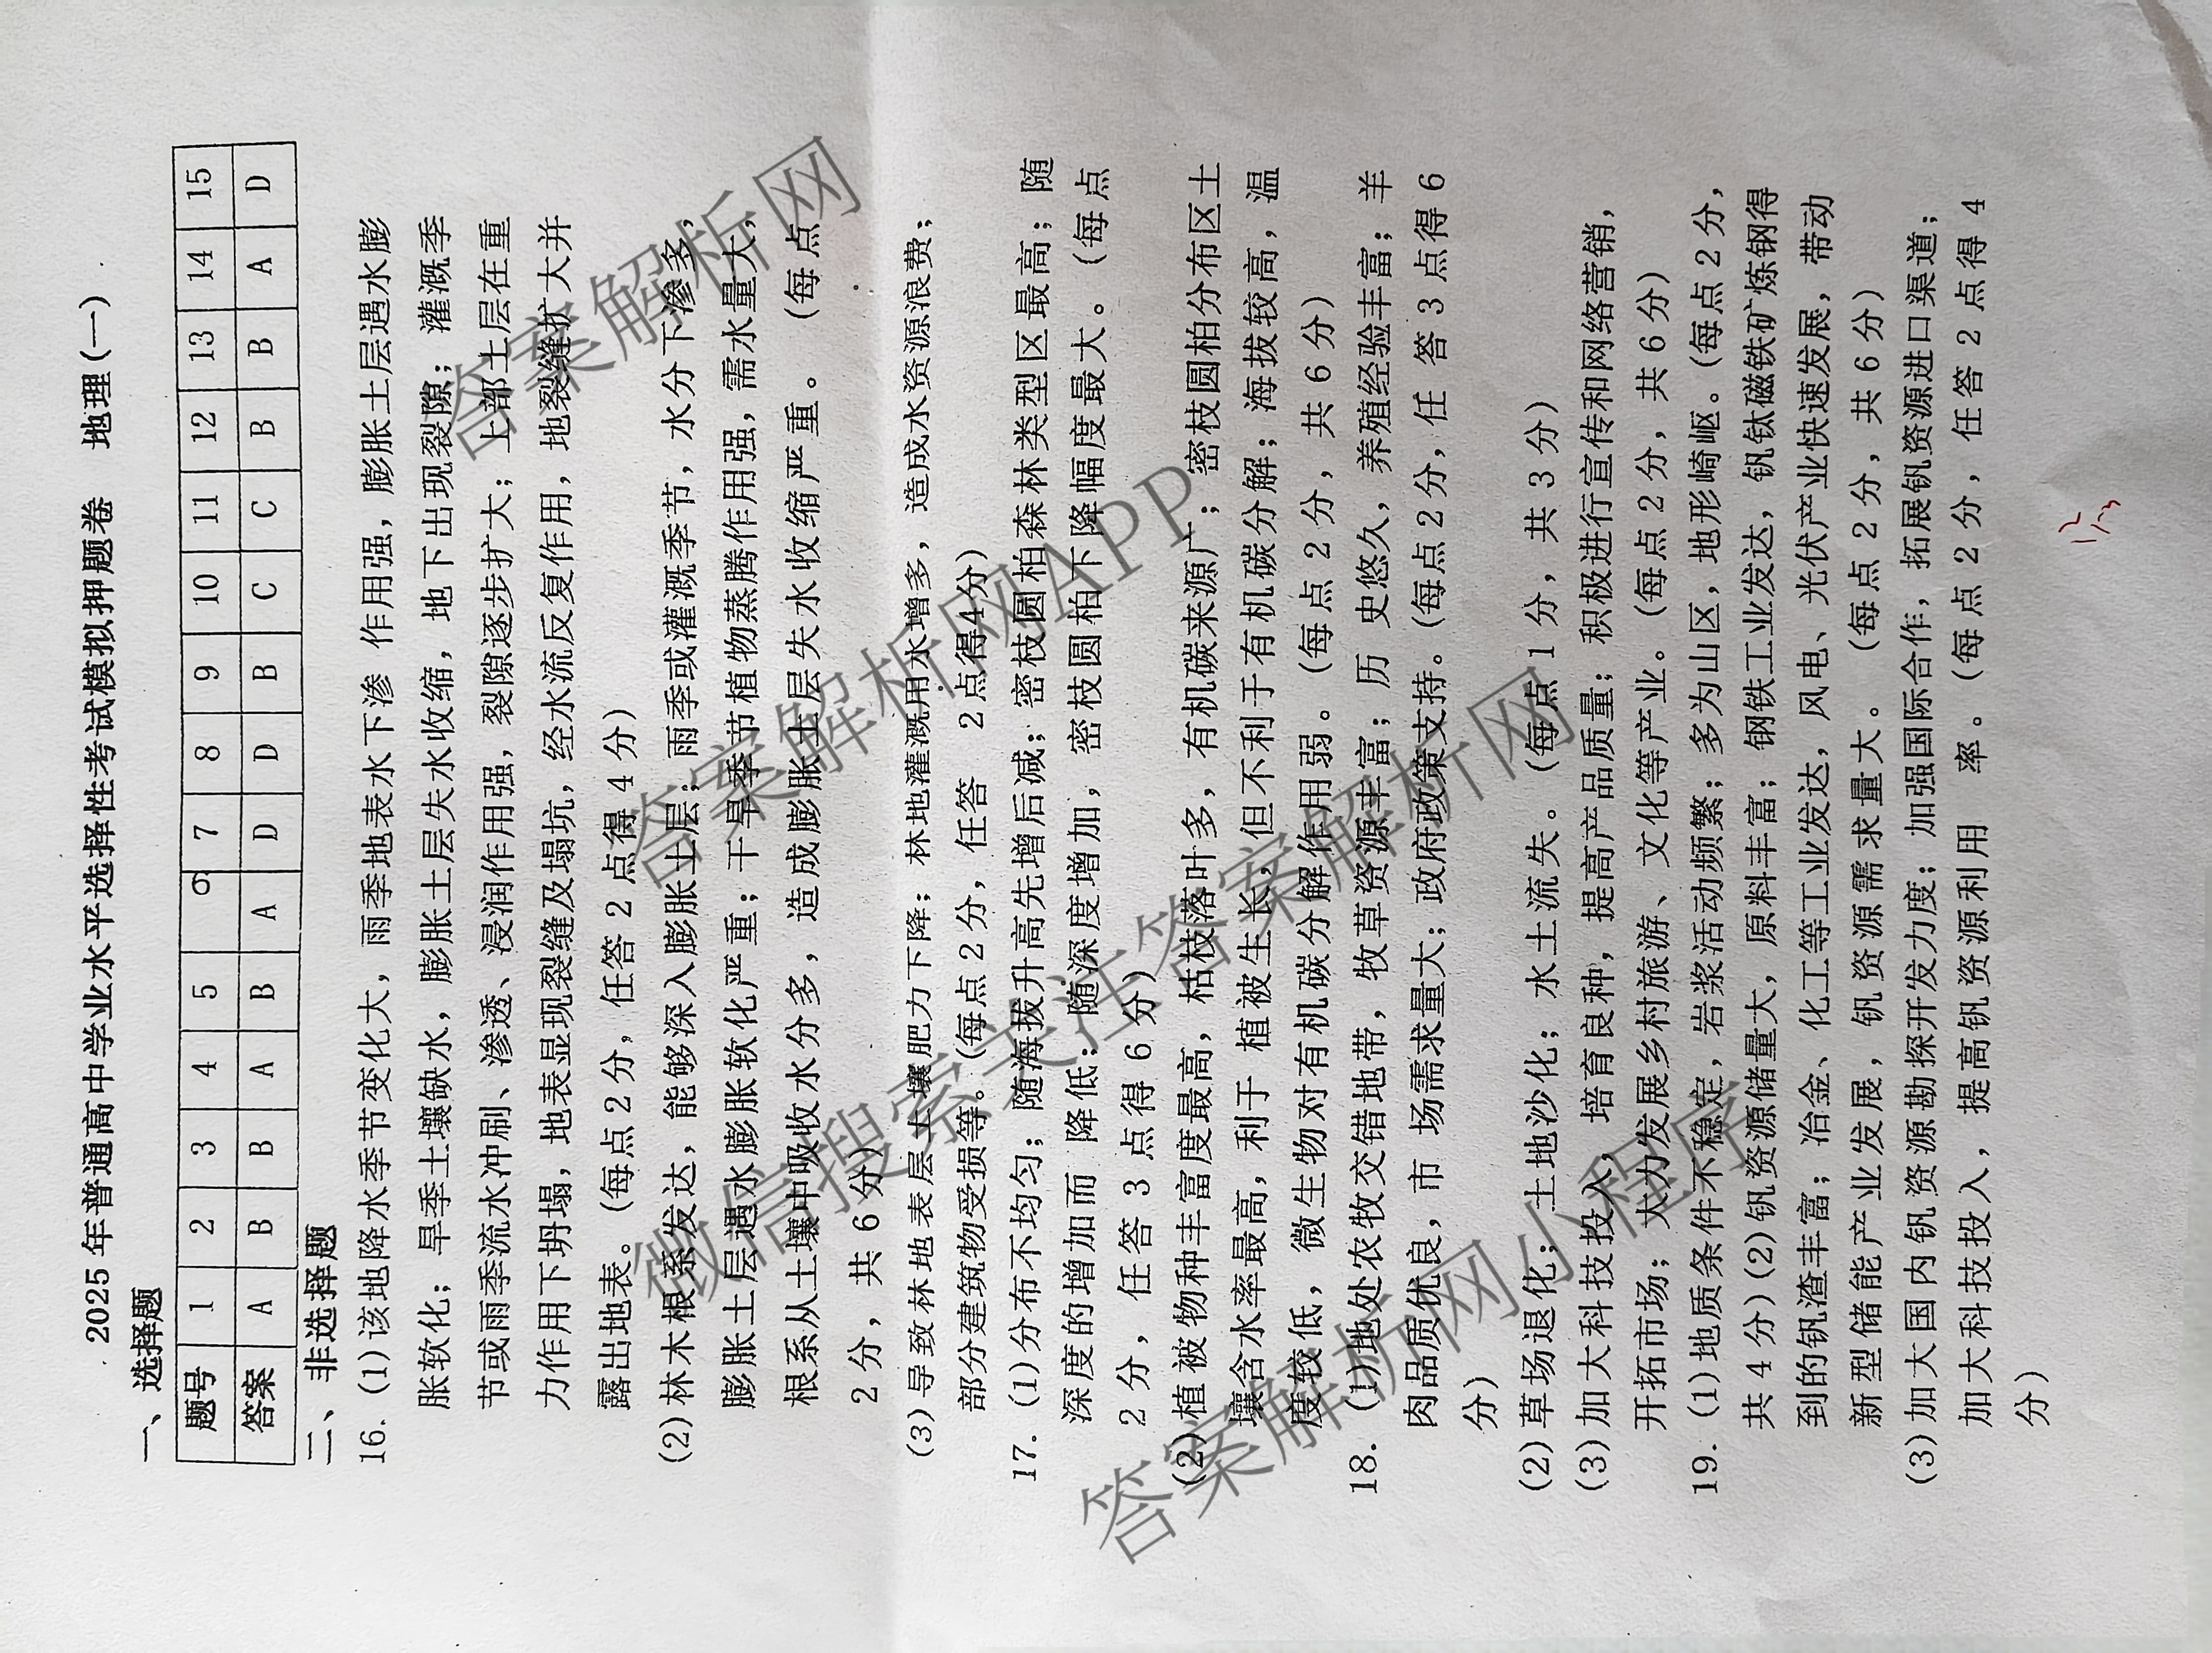 2025年普通高中学业水平选择性考试模拟押题卷 地理(一)
一、选择题
题号 1 2 3 4 5 6 7 8 9 10 11 12 13 14 15
答案 A B B A B A D D B C C B B A D
二、非选择题
16. (1)该地降水季节变化大，雨季地表水下渗 作用强，膨胀土层遇水膨
胀软化；旱季土壤缺水，膨胀土层失水收缩，地下出现裂隙；灌溉季
节或雨季流水冲刷、渗透、浸润作用强，裂隙逐步扩大；上部土层在重
力作用下坍塌，地表显现裂缝及塌坑，经水流反复作用，地裂缝扩大并
露出地表。(每点2分，任答2点得4分)
(2)林木根系发达，能够深入膨胀土层；雨季或灌溉季节，水分下渗多，
膨胀土层遇水膨胀软化严重；干旱季节植物蒸腾作用强，需水量大，
根系从土壤中吸收水分多，造成膨胀土层失水收缩严重。(每点
2分，共6分)
(3)导致林地表层土壤肥力下降；林地灌溉用水增多，造成水资源浪费；
部分建筑物受损等。(每点2分，任答 2点得4分)
17. (1)分布不均匀；随海拔升高先增后减；密枝圆柏森林类型区最高；随
深度的增加而 降低；随深度增加，密枝圆柏下降幅度最大。(每点
2分，任答3点得6分)
(2)植被物种丰富度最高，枯枝落叶多，有机碳来源广；密枝圆柏分布区土
壤含水率最高，利于 植被生长，但不利于有机碳分解；海拔较高，温
度较低，微生物对有机碳分解作用弱。(每点2分，共6分)
18. (1)地处农牧交错地带，牧草资源丰富；历 史悠久，养殖经验丰富；羊
肉品质优良，市 场需求量大；政府政策支持。(每点2分，任 答3点得6
分)
(2)草场退化；土地沙化；水土流失。(每点1分，共3分)
(3)加大科技投入，培育良种，提高产品质量；积极进行宣传和网络营销，
开拓市场；大力发展乡村旅游、文化等产业。(每点2分，共6分)
19. (1)地质条件不稳定，岩浆活动频繁；多为山区，地形崎岖。(每点2分，
共4分)(2)钒资源储量大，原料丰富；钢铁工业发达，钒钛磁铁矿炼钢得
到的钒渣丰富；冶金、化工等工业发达，风电、光伏产业快速发展，带动
新型储能产业发展，钒资源需求量大。(每点2分，共6分)
(3)加大国内钒资源勘探开发力度；加强国际合作，拓展钒资源进口渠道；
加大科技投入，提高钒资源利用 率。(每点2分，任答2点得4
分)
答案解析网
答案解析网APP
微信搜索关注答案解析网
答案解析网小程序